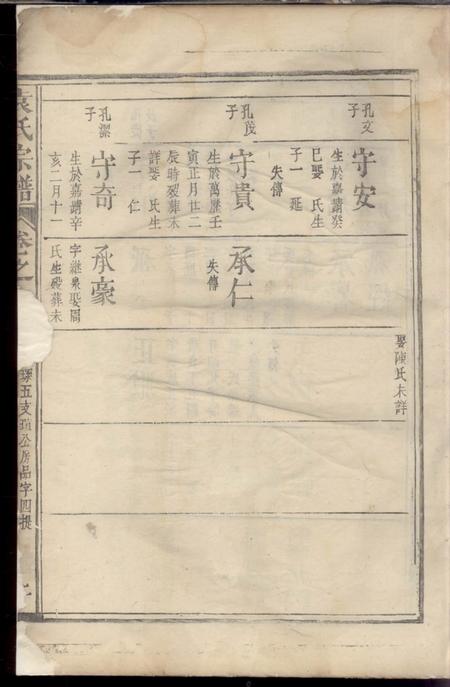 娶陳氏未詳
孔文子
守安
生於嘉靖癸
巳娶　氏生
子一　延
失傳
孔茂子
守貴
生於萬曆壬
寅正月廿二
辰時歿葬未
詳娶　氏生
子一　仁
承仁
失傳
孔潔子
守奇
生於嘉靖辛
亥二月十一
承豪
字繼泉娶周
氏生歿葬未
袁氏宗譜
卷之
五支 公房品字四提